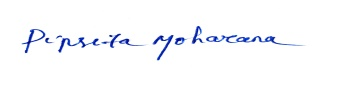 Dipseeta Moharana